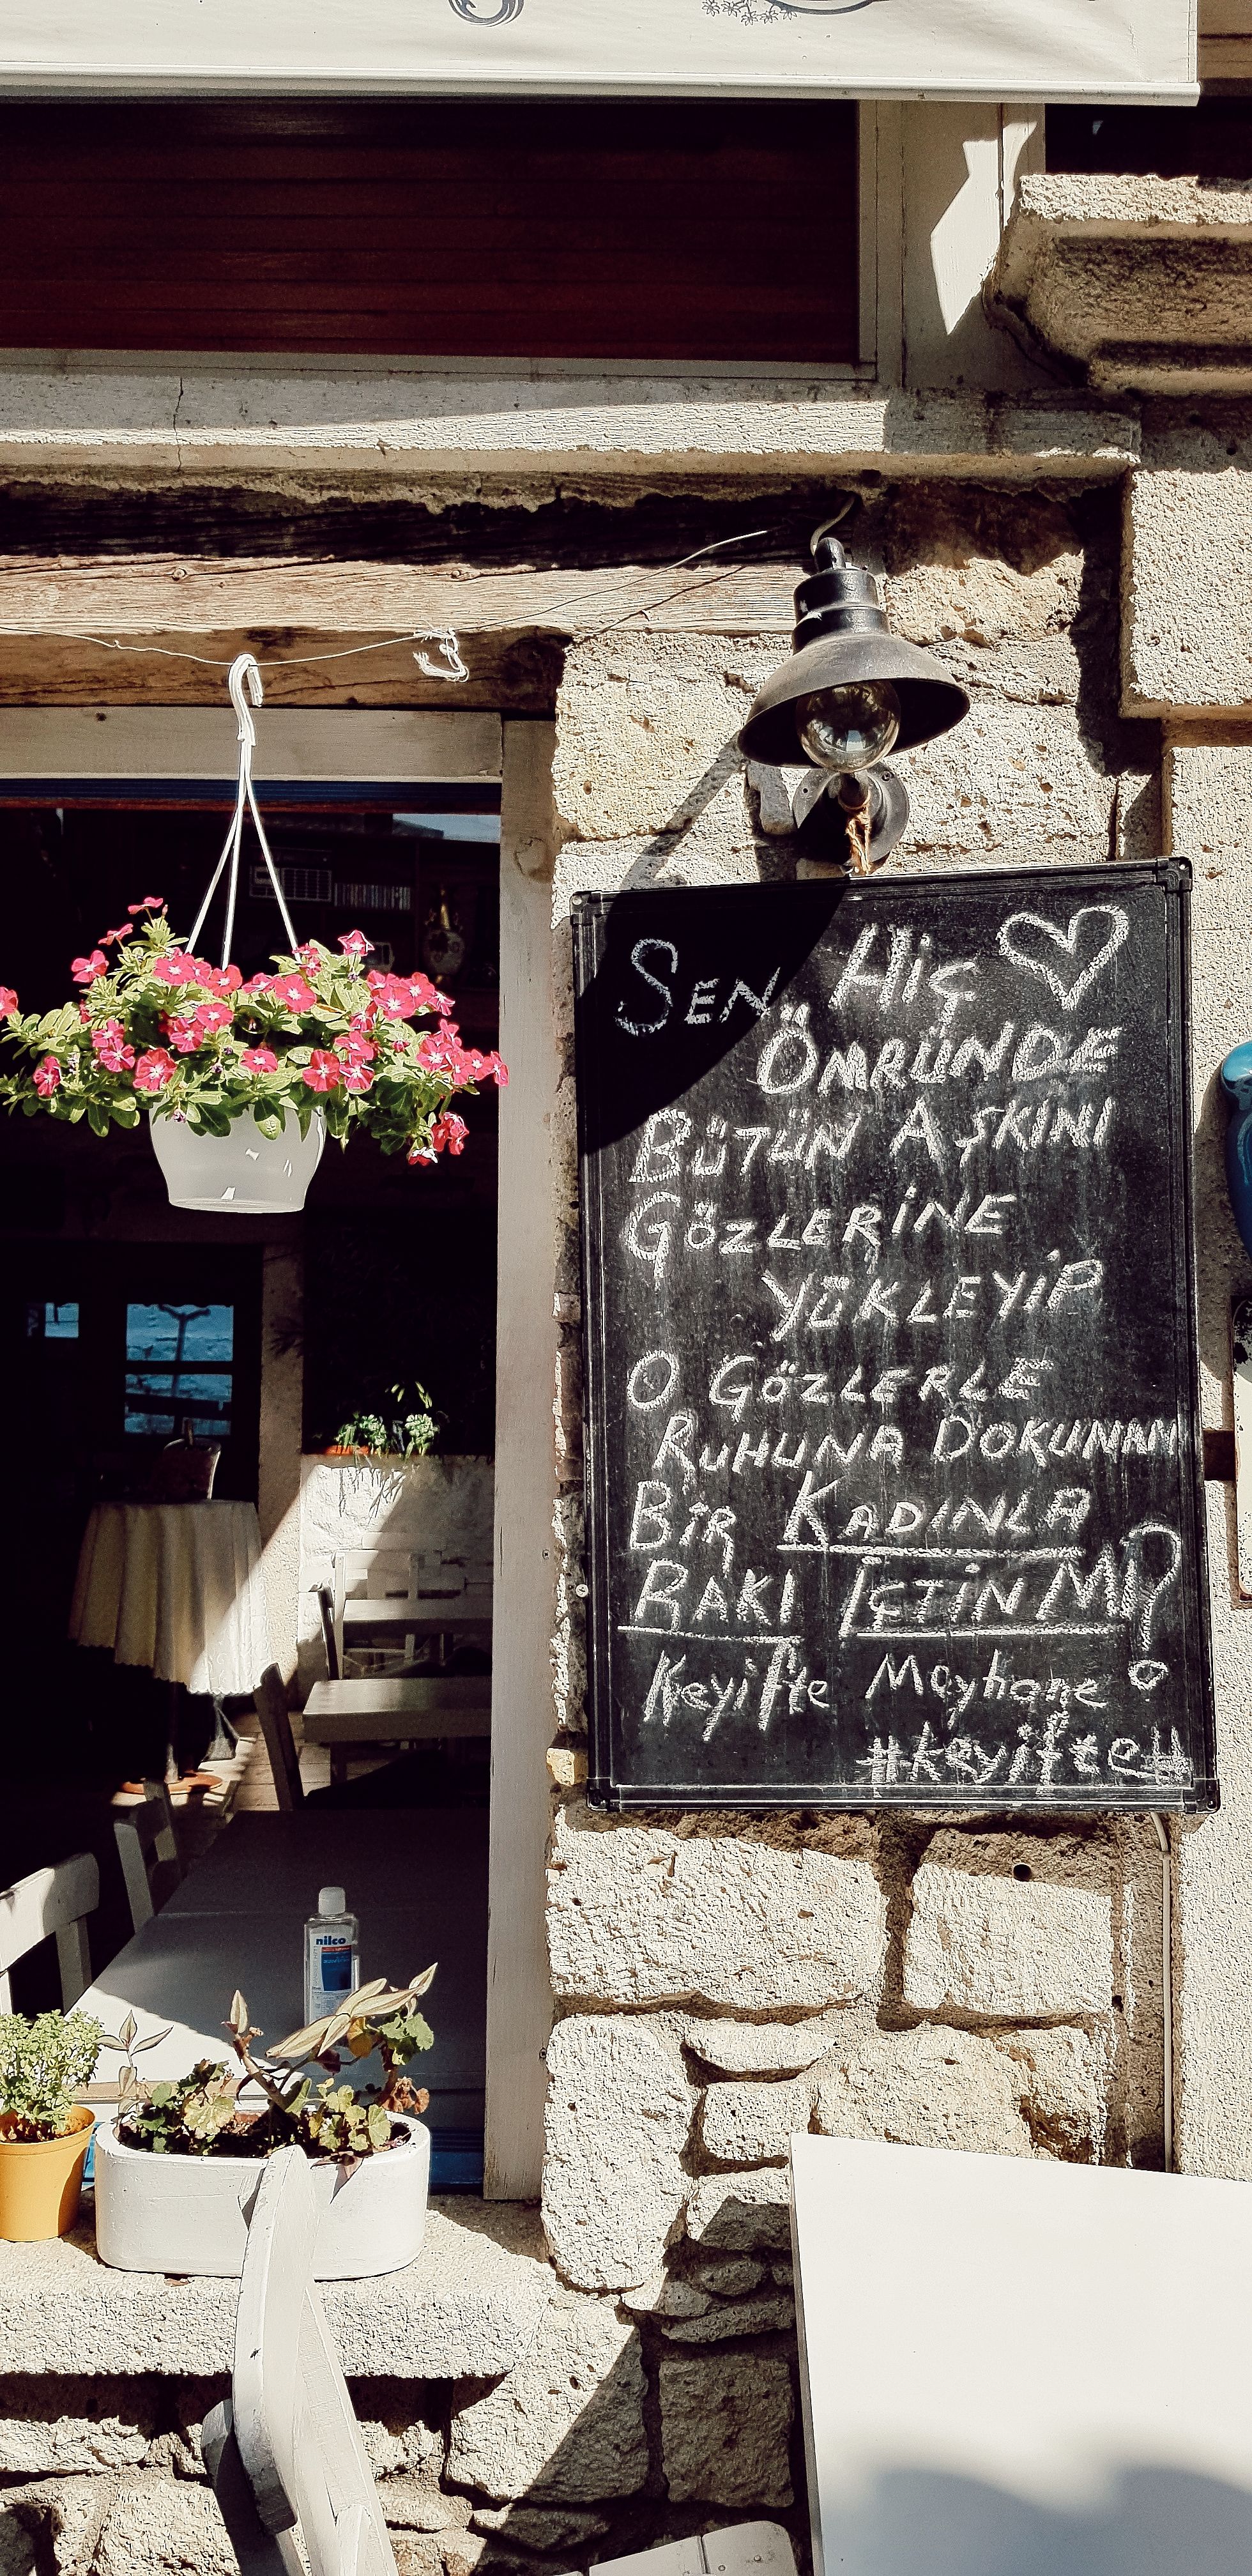 SEN HİÇ
ÖMRÜNDE
BÜTÜN AŞKINI
GÖZLERİNE
YÜKLEYİP
O GÖZLERLE
RUHUNA DOKUNAN
BİR KADINLA
RAKI İÇTİN Mİ?
Keyifte Meyhane
#keyifte#
nilco